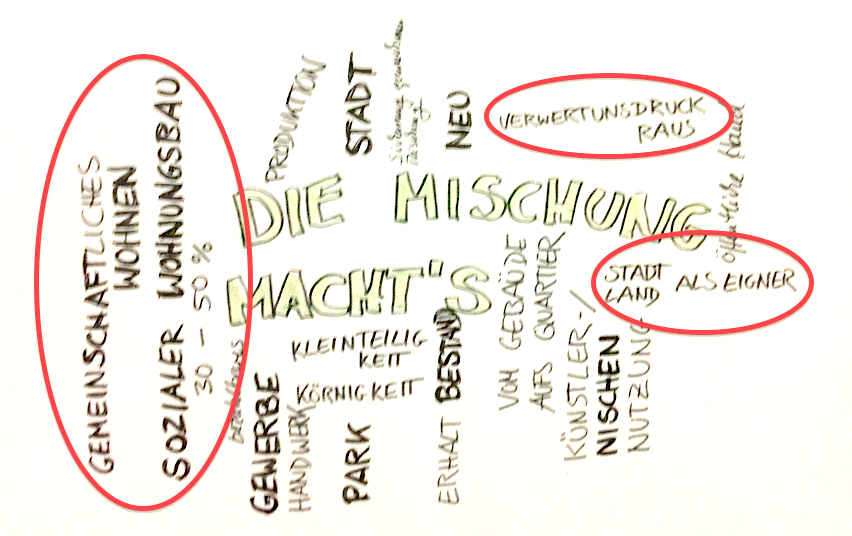 GEMEINSCHAFTLICHES
WOHNEN
SOZIALER WOHNUNGSBAU
30 – 50 %
PRODUKTION
STADT
NEU
VERWERTUNSDRUCK
RAUS
öffentliche Hand
DIE MISCHUNG
MACHT'S
STADT
LAND ALS EIGNER
bezahlbares
GEWERBE
HANDWERK
KLEINTEILIG
KEIT
KÖRNIGKEIT
PARK
ERHALT BESTAND
VOM GEBÄUDE
AUFS QUARTIER
KÜNSTLER-/
NISCHEN
NUTZUNG